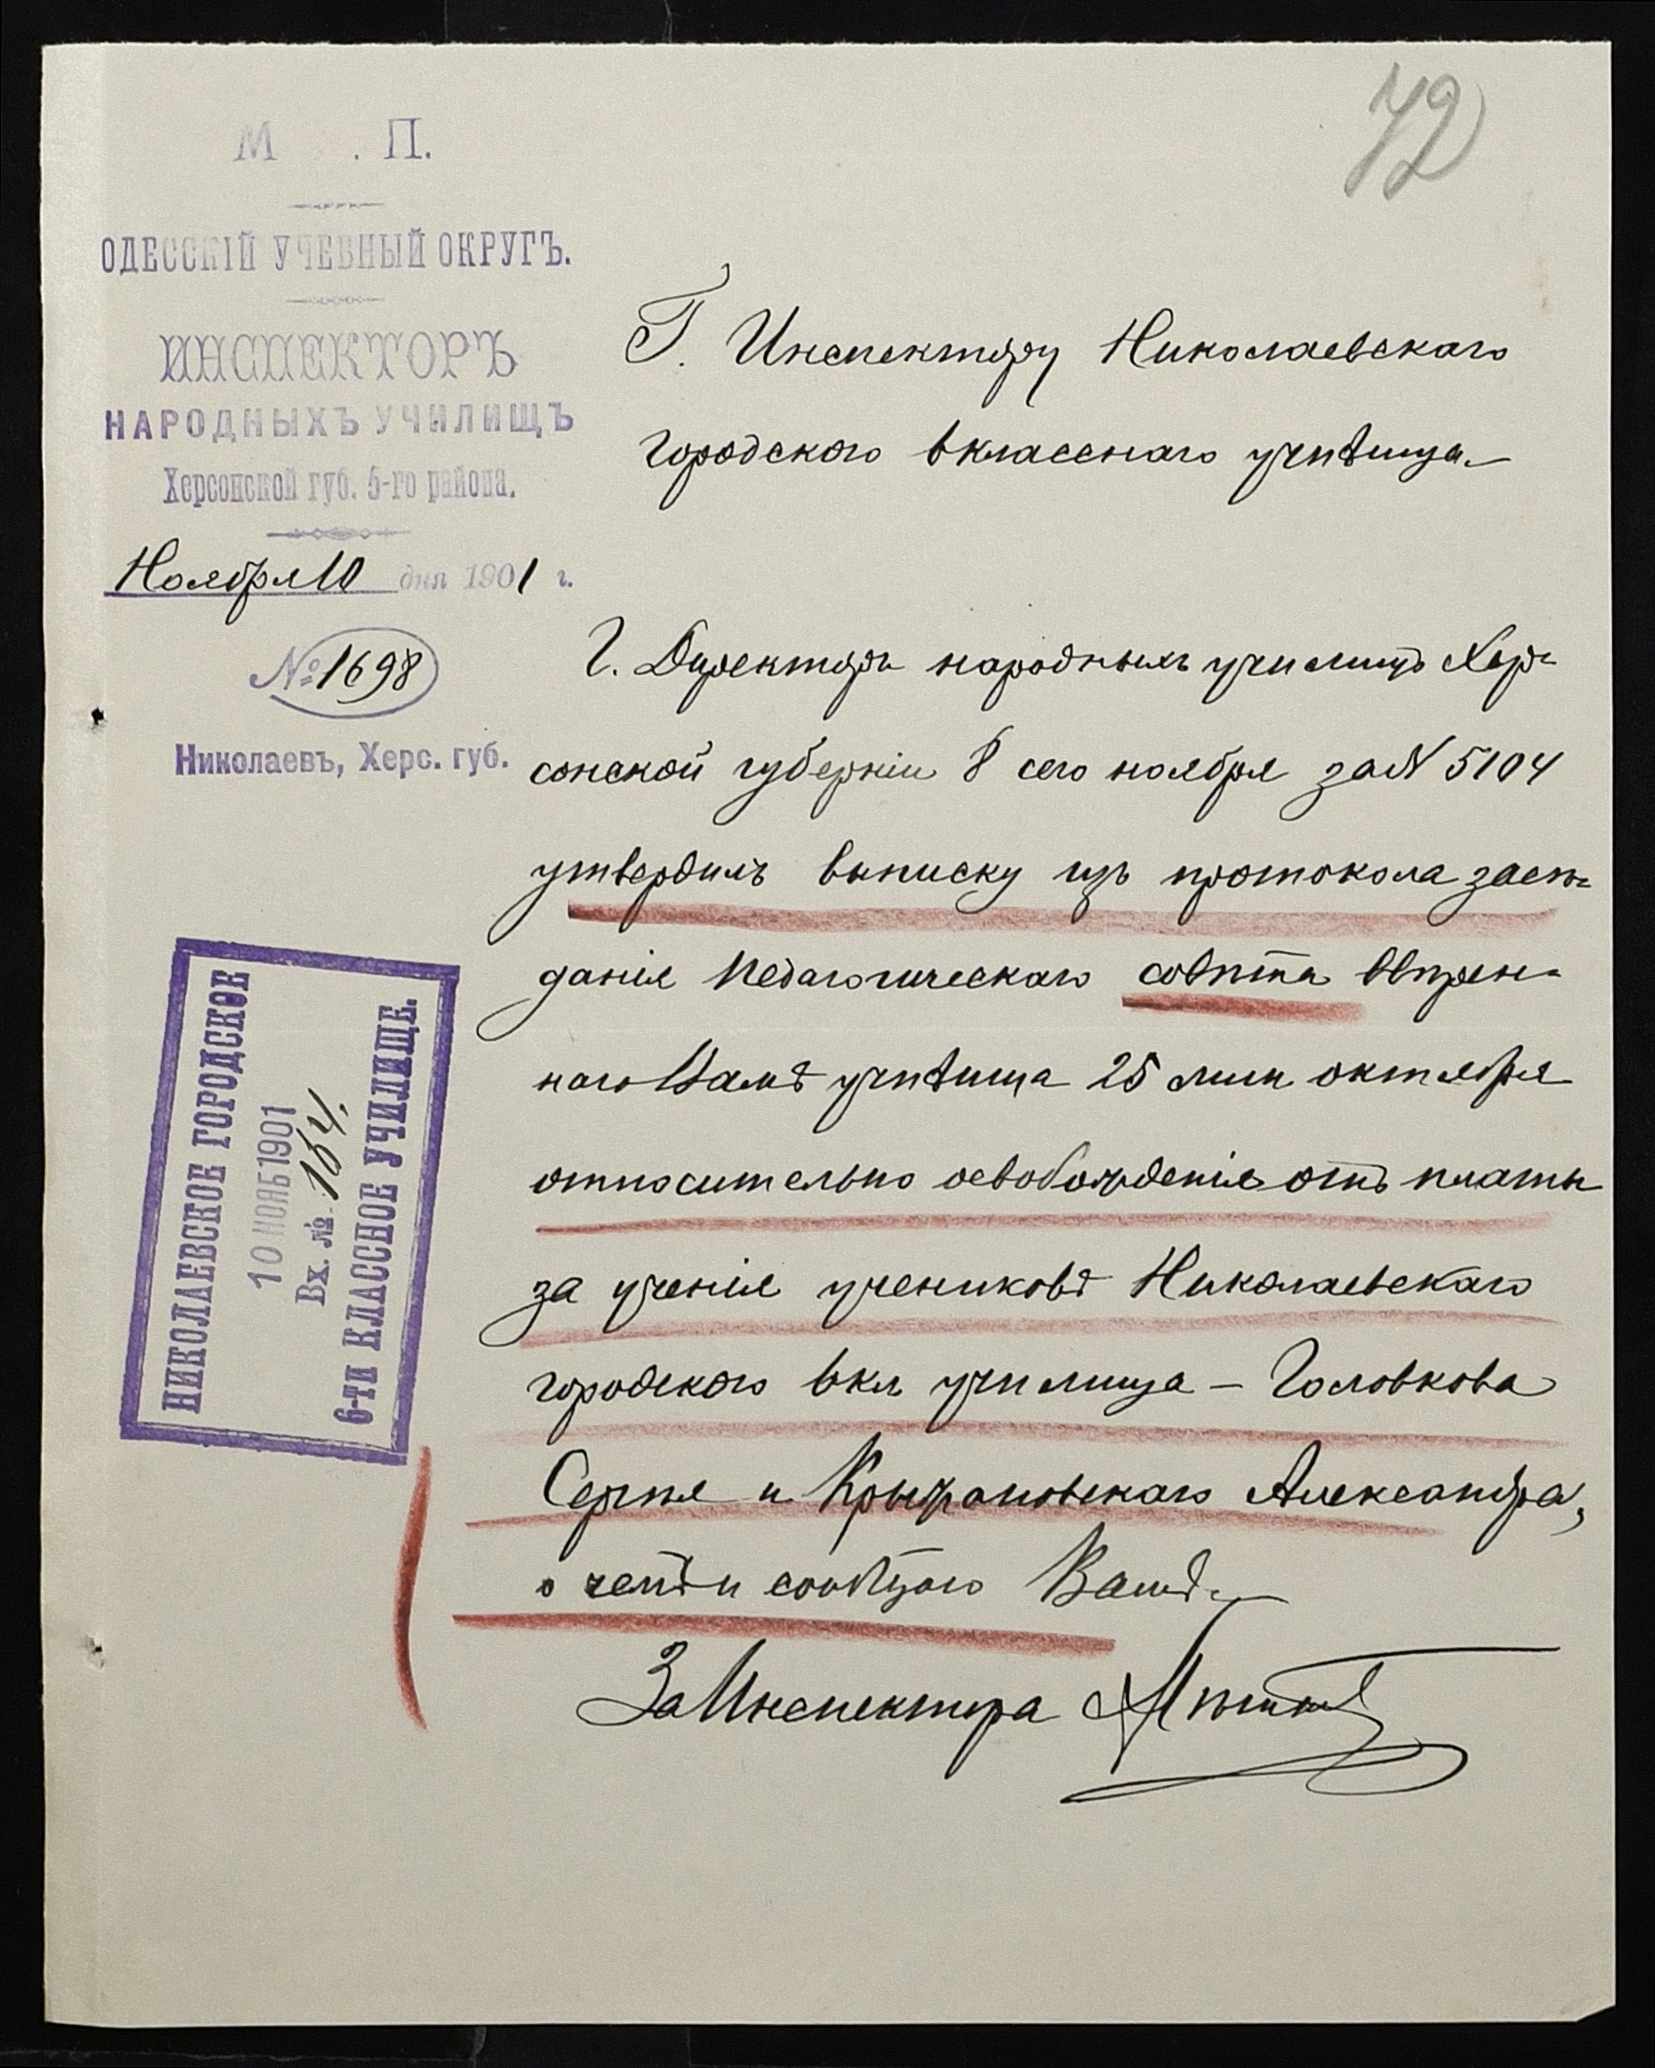 72
М . П.
ОДЕССКІЙ УЧЕБНЫЙ ОКРУГЪ.
ИНСПЕКТОРЪ
НАРОДНЫХЪ УЧИЛИЩЪ
Херсонской губ. 5-го района.
Ноября 10 дня 1901 г.
№ 1698
Николаевъ, Херс. губ.
Г. Инспектору Николаевскаго
городского 6 класснаго училища.
Г. Директоръ народныхъ училищъ Хер-
сонской губерніи 8 сего ноября за № 5104
утвердилъ выписку изъ протокола засѣ-
данія педагогическаго совѣта ввѣрен-
наго Вамъ училища 25 октября
относительно освобожденія отъ платы
за ученіе учениковъ Николаевскаго
городского 6 кл училища – Головкова
Сергѣя и Крыжановскаго Александра,
о чемъ и сообщаю Вамъ.
За Инспектора
НИКОЛАЕВСКОЕ ГОРОДСКОЕ
10 НОЯБ 1901
Вх. № 164.
6-ти КЛАССНОЕ УЧИЛИЩЕ.